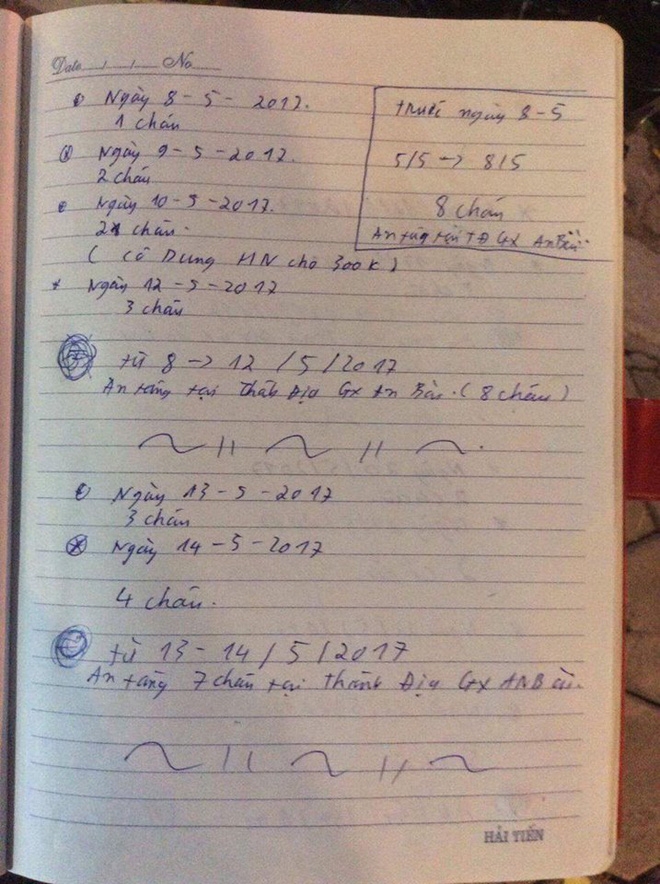 Date / / No
Ngày 8 - 5 - 2017.
1 cháu
Ngày 9 - 5 - 2017.
2 cháu
Ngày 10 - 5 - 2017.
2 cháu.
( Cô Dung HN cho 300K)
+ Ngày 12 - 5 - 2017
3 cháu
trước ngày 8 - 5
5/5 -> 8/5
8 cháu
An táng tại TĐ Gx An Bài
từ 8 -> 12 / 5 / 2017
An táng tại Thánh Địa Gx An Bài. ( 8 cháu )
Ngày 13 - 5 - 2017
3 cháu
Ngày 14 - 5 - 2017
4 cháu.
từ 13 - 14 / 5 / 2017
An táng 7 cháu tại thánh Địa Gx AN Bài.
HẢI TIẾN